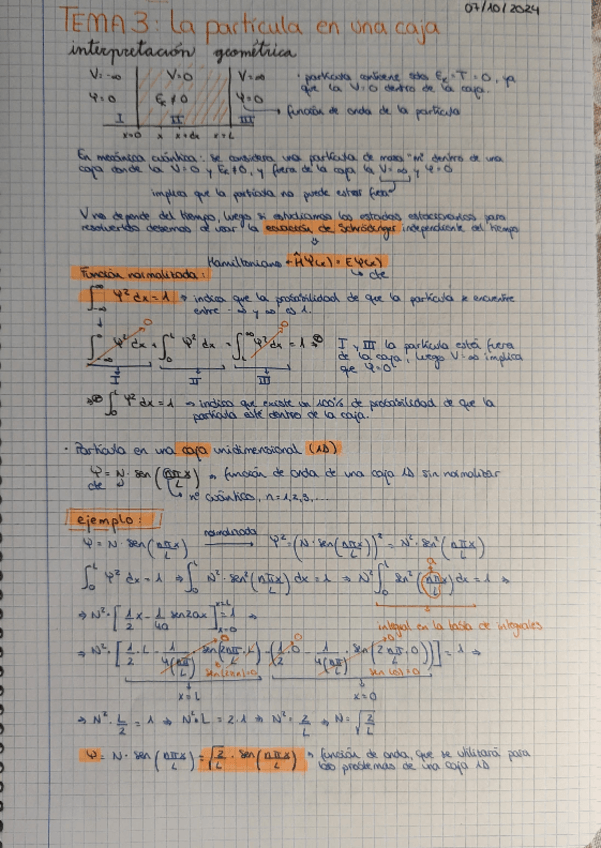 07/10/2024
TEMA 3: La partícula en una caja
interpretación geométrica
V=-∞ V=0 V=∞ · partícula contiene esta Ek=T=0, ya
que la V=0 dentro de la caja.
Ψ=0 Ek≠0 Ψ=0 → función de onda de la partícula
I II III
x=0 x x+dx x=L
En mecánica cuántica: se considera una partícula de masa "m" dentro de una
caja donde la V=0 y Ek≠0, y fuera de la caja la V=∞ y Ψ=0
implica que la partícula no puede estar fuera
V no depende del tiempo, luego si estudiamos los estados estacionarios para
resolverlo debemos usar la ecuación de Schrödinger independiente del tiempo
Hamiltoniano ← ĤΨ(x) = EΨ(x)
↳ cte
Función normalizada:
∫_{-∞}^{∞} Ψ² dx = 1 → indica que la probabilidad de que la partícula se encuentre
entre -∞ y ∞ es 1.
∫_{-∞}^{0} Ψ² dx + ∫_0^L Ψ² dx + ∫_L^∞ Ψ² dx = 1 ⇒ I y III la partícula está fuera
de la caja, luego V=∞ implica
que Ψ=0
I II III
⇒ ∫_0^L Ψ² dx = 1 → indica que existe un 100% de probabilidad de que la
partícula esté dentro de la caja.
· Partícula en una caja unidimensional (1D)
Ψ = N · sen(nπx/L) → función de onda de una caja 1D sin normalizar
cte ↳ nº cuántico, n=1,2,3,...
ejemplo:
Ψ = N · sen(nπx/L) normalizada → Ψ² = (N · sen(nπx/L))² = N² · sen²(nπx/L)
∫_0^L Ψ² dx = 1 ⇒ ∫_0^L N² · sen²(nπx/L) dx = 1 ⇒ N² ∫_0^L sen²(nπx/L) dx = 1 ⇒
a
⇒ N² · [1/2 x - 1/4a sen 2ax]_{x=0}^{x=L} = 1 ⇒ integral en la tabla de integrales
⇒ N² · [1/2 · L - 1/4(nπ/L) · sen(2nπ/L · L) - (1/2 · 0 - 1/4(nπ/L) · sen(2nπ/L · 0))] = 1 ⇒
0 0
x=L x=0
⇒ N² · L/2 = 1 ⇒ N² · L = 2·1 ⇒ N² = 2/L ⇒ N = √(2/L)
Ψ = N · sen(nπx/L) = √(2/L) · sen(nπx/L) → función de onda, que se utilizará para
los problemas de una caja 1D